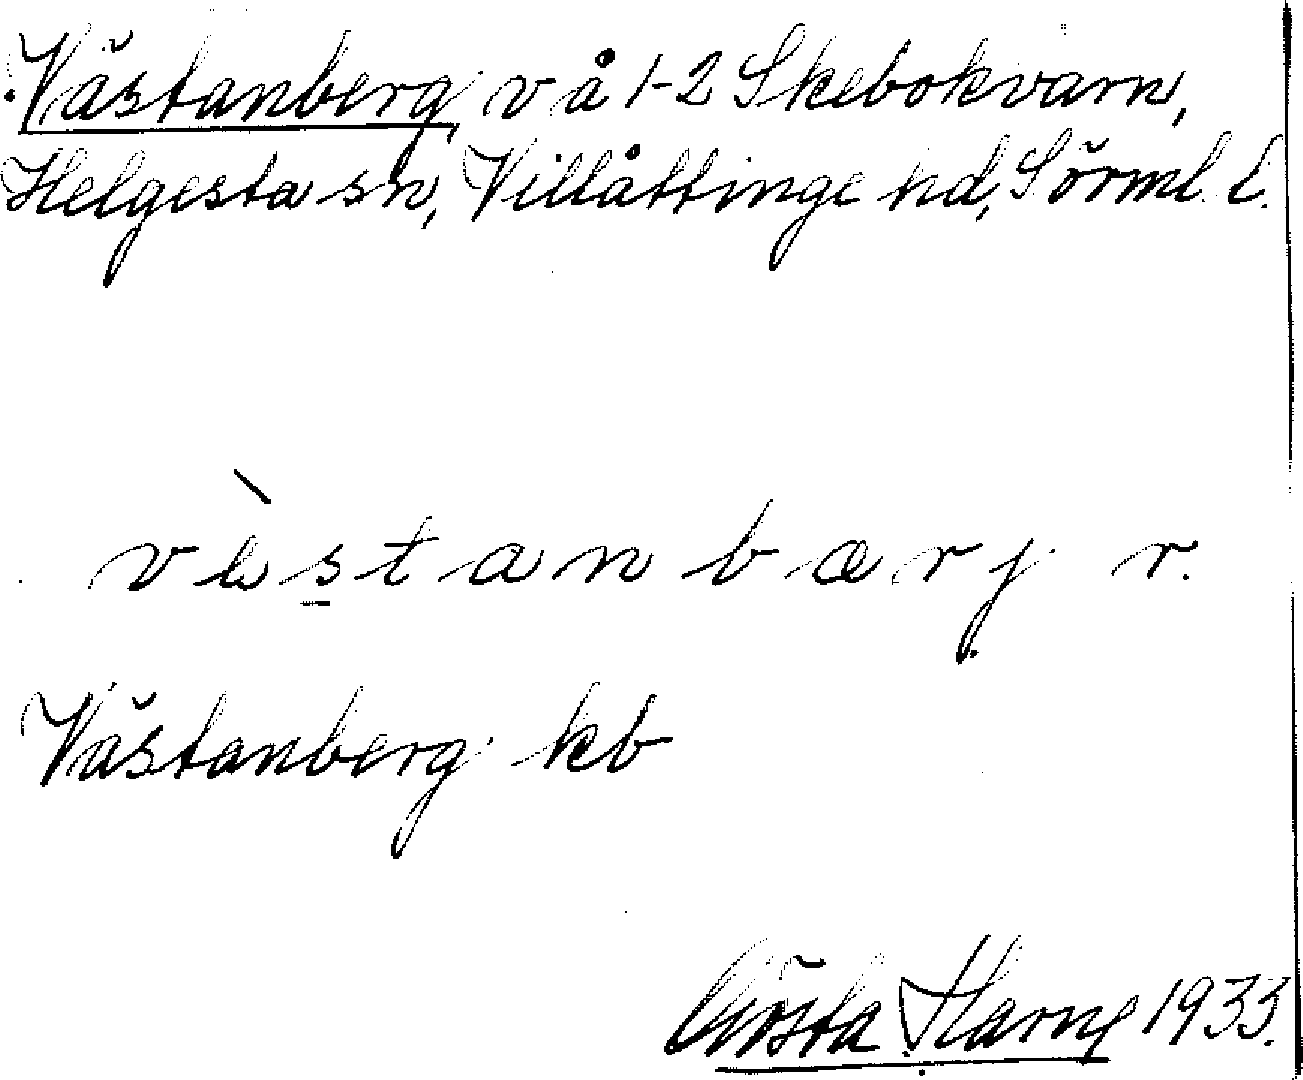 Västanberg vå 1-2 Skebokvarn,
Helgesta sn, Villåttinge hd, Sörml. l.
vèstanbærj r.
Västanberg kb
Gösta Harne 1933.